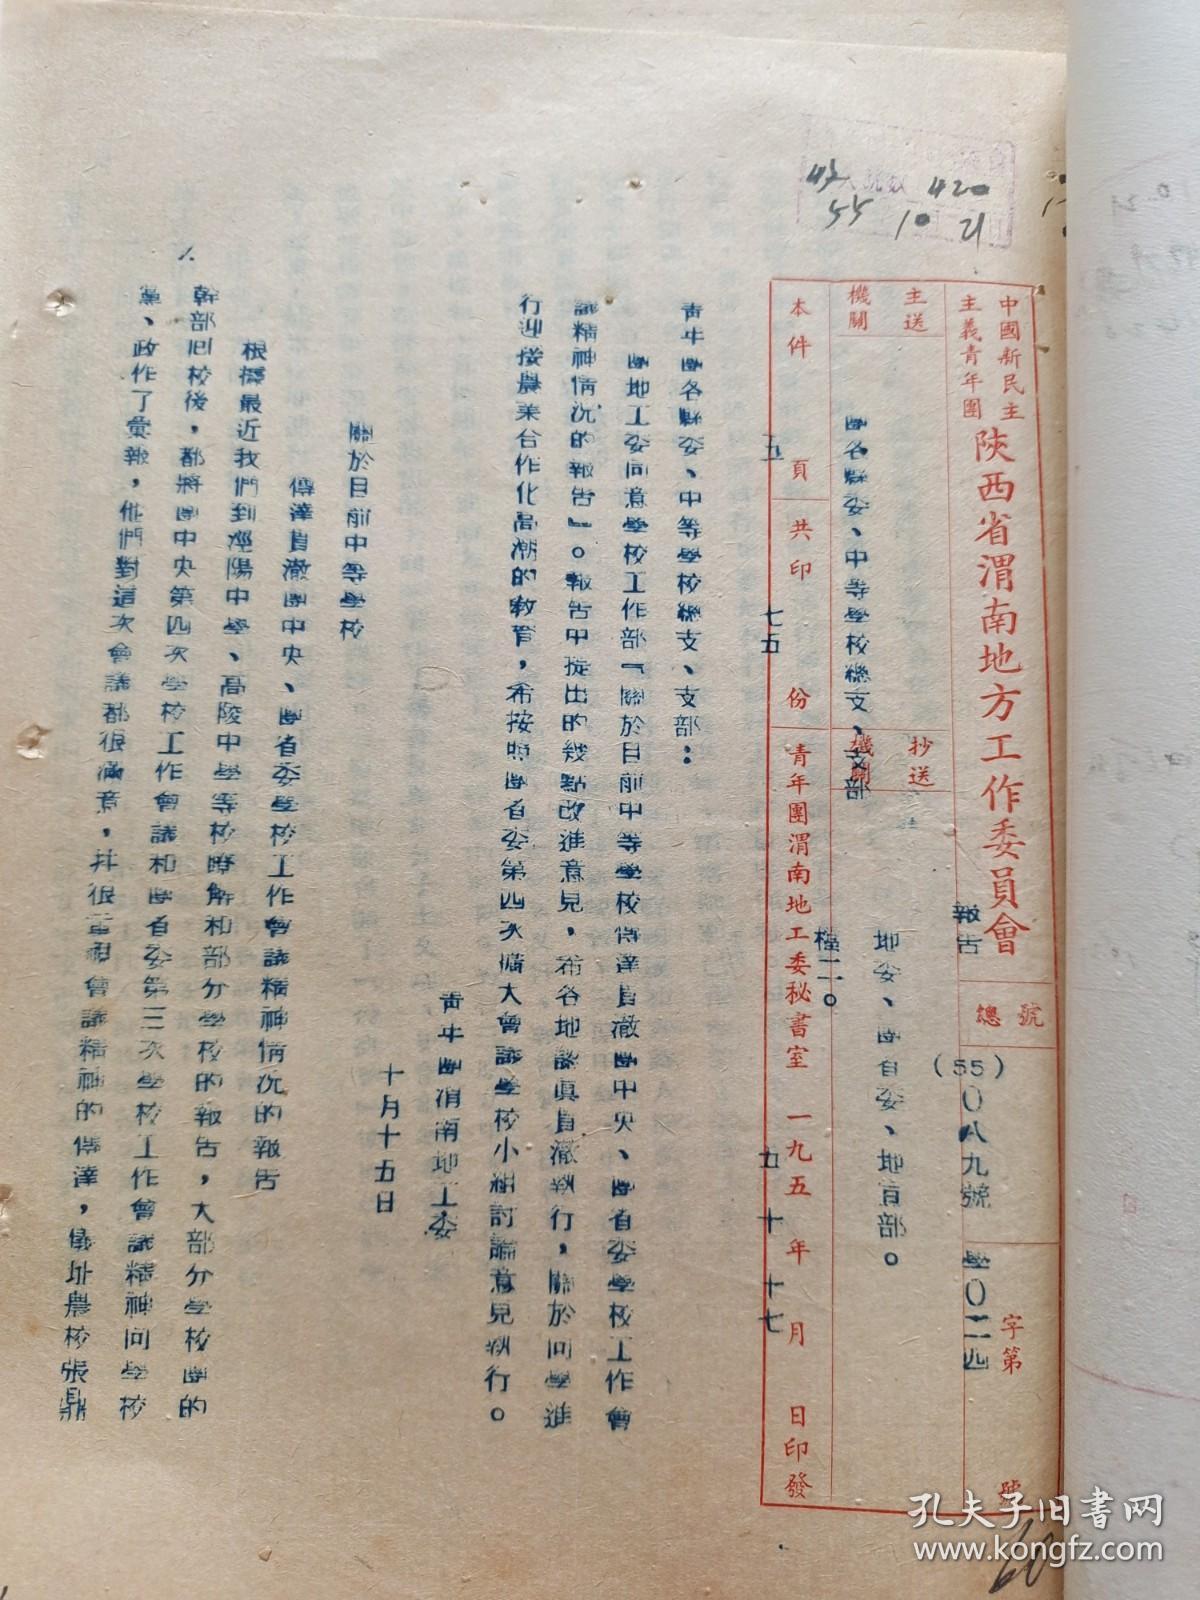 420
55 10 21
中國新民主
主義青年團
陝西省渭南地方工作委員會
報告
總號
(55)〇八九號
學〇二四
字第 號
主送
機關
團各縣委、中等學校總支、支部
抄送
機關
地委、團省委、地宣部。
檔二。
本件 五 頁 共印 七五 份 青年團渭南地工委秘書室 一九五五年十月十七日印發
青年團各縣委、中等學校總支、支部：
團地工委同意學校工作部『關於目前中等學校傳達貫澈團中央、團省委學校工作會
議精神情況的報告』。報告中提出的幾點改進意見，希各地認真貫澈執行，關於向學進
行迎接農業合作化高潮的教育，希按照團省委第四次擴大會議學校小組討論意見執行。
青年團渭南地工委
十月十五日
關於目前中等學校
傳達貫澈團中央、團省委學校工作會議精神情況的報告
根據最近我們到涇陽中學、高陵中學等校瞭解和部分學校的報告，大部分學校團的
幹部回校後，都將團中央第四次學校工作會議和團省委第三次學校工作會議精神向學校
黨、政作了彙報，他們對這次會議都很滿意，并很重視會議精神的傳達，儀址農校張鼎
60
孔夫子旧书网
www.kongfz.com